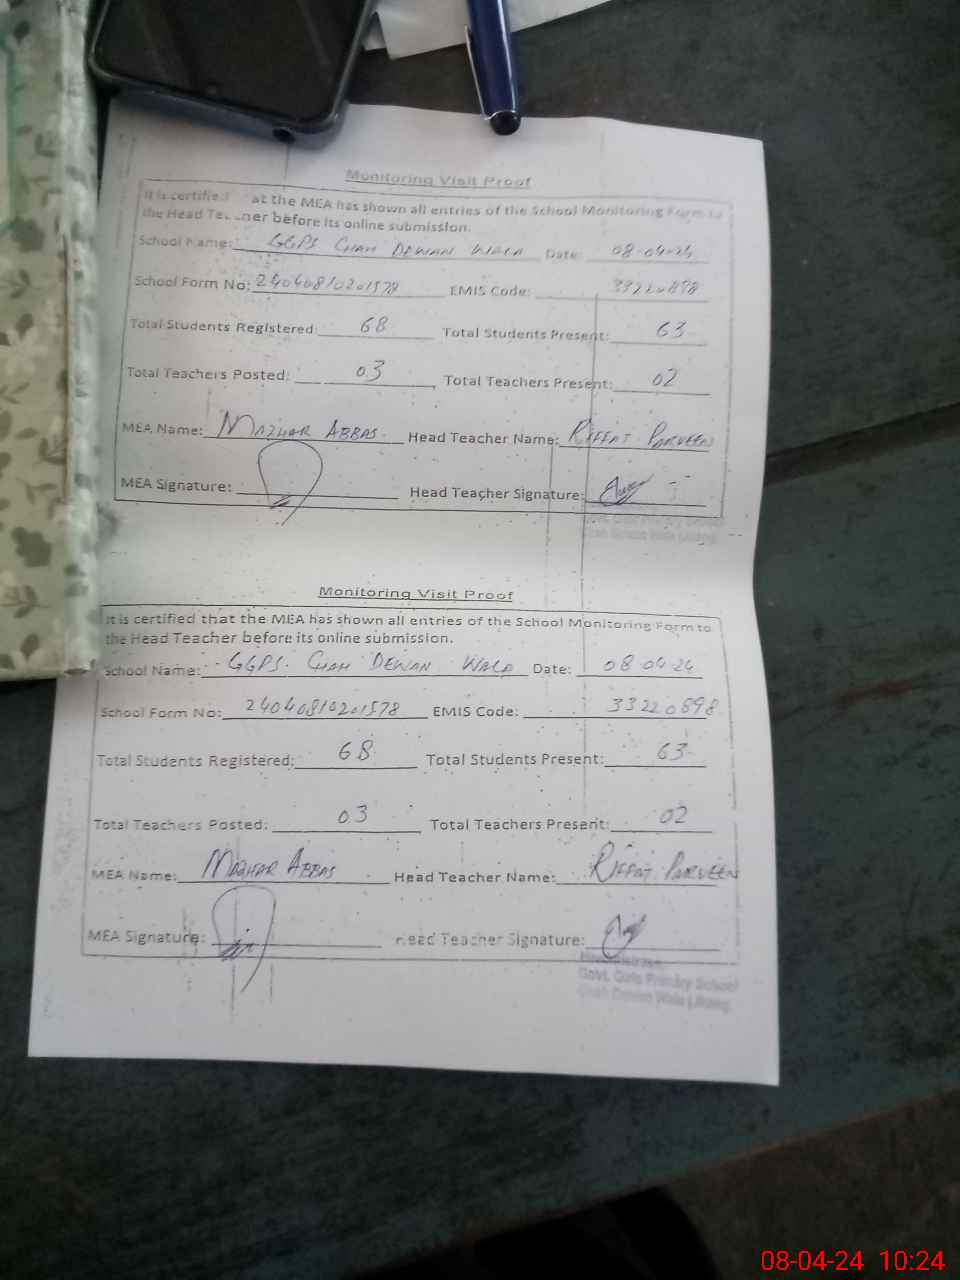 Monitoring Visit Proof
It is certified at the MEA has shown all entries of the School Monitoring Form to
the Head Teacher before its online submission.
School Name: GGPS CHAH DEWAN WALA Date: 08-04-24
School Form No: 24040810201578 EMIS Code: 33220898
Total Students Registered: 68 Total Students Present: 63
Total Teachers Posted: 03 Total Teachers Present: 02
MEA Name: MAZHAR ABBAS. Head Teacher Name: RIFFAT PARVEEN
MEA Signature: Head Teacher Signature:
Monitoring Visit Proof
It is certified that the MEA has shown all entries of the School Monitoring Form to
the Head Teacher before its online submission.
School Name: GGPS. CHAH DEWAN WALA Date: 08-04-24
School Form No: 24040810201578 EMIS Code: 33220898
Total Students Registered: 68 Total Students Present: 63
Total Teachers Posted: 03 Total Teachers Present: 02
MEA Name: MAZHAR ABBAS Head Teacher Name: RIFFAT PARVEEN
MEA Signature: Head Teacher Signature:
Govt. Girls Primary School
Chah Dewan Wala
08-04-24 10:24